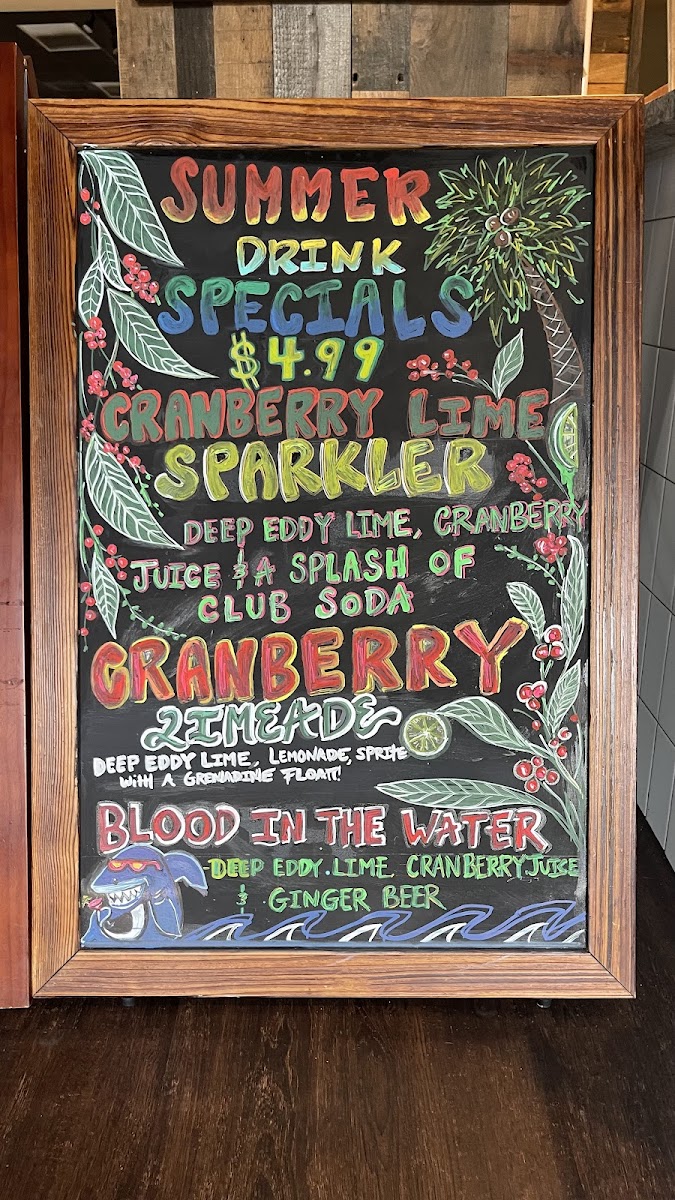 SUMMER
DRINK
SPECIALS
$4.99
CRANBERRY LIME
SPARKLER
DEEP EDDY LIME, CRANBERRY
JUICE & A SPLASH OF
CLUB SODA
CRANBERRY
LIMEADE
DEEP EDDY LIME, LEMONADE, SPRITE
WITH A GRENADINE FLOAT!
BLOOD IN THE WATER
-DEEP EDDY LIME CRANBERRY JUICE
& GINGER BEER